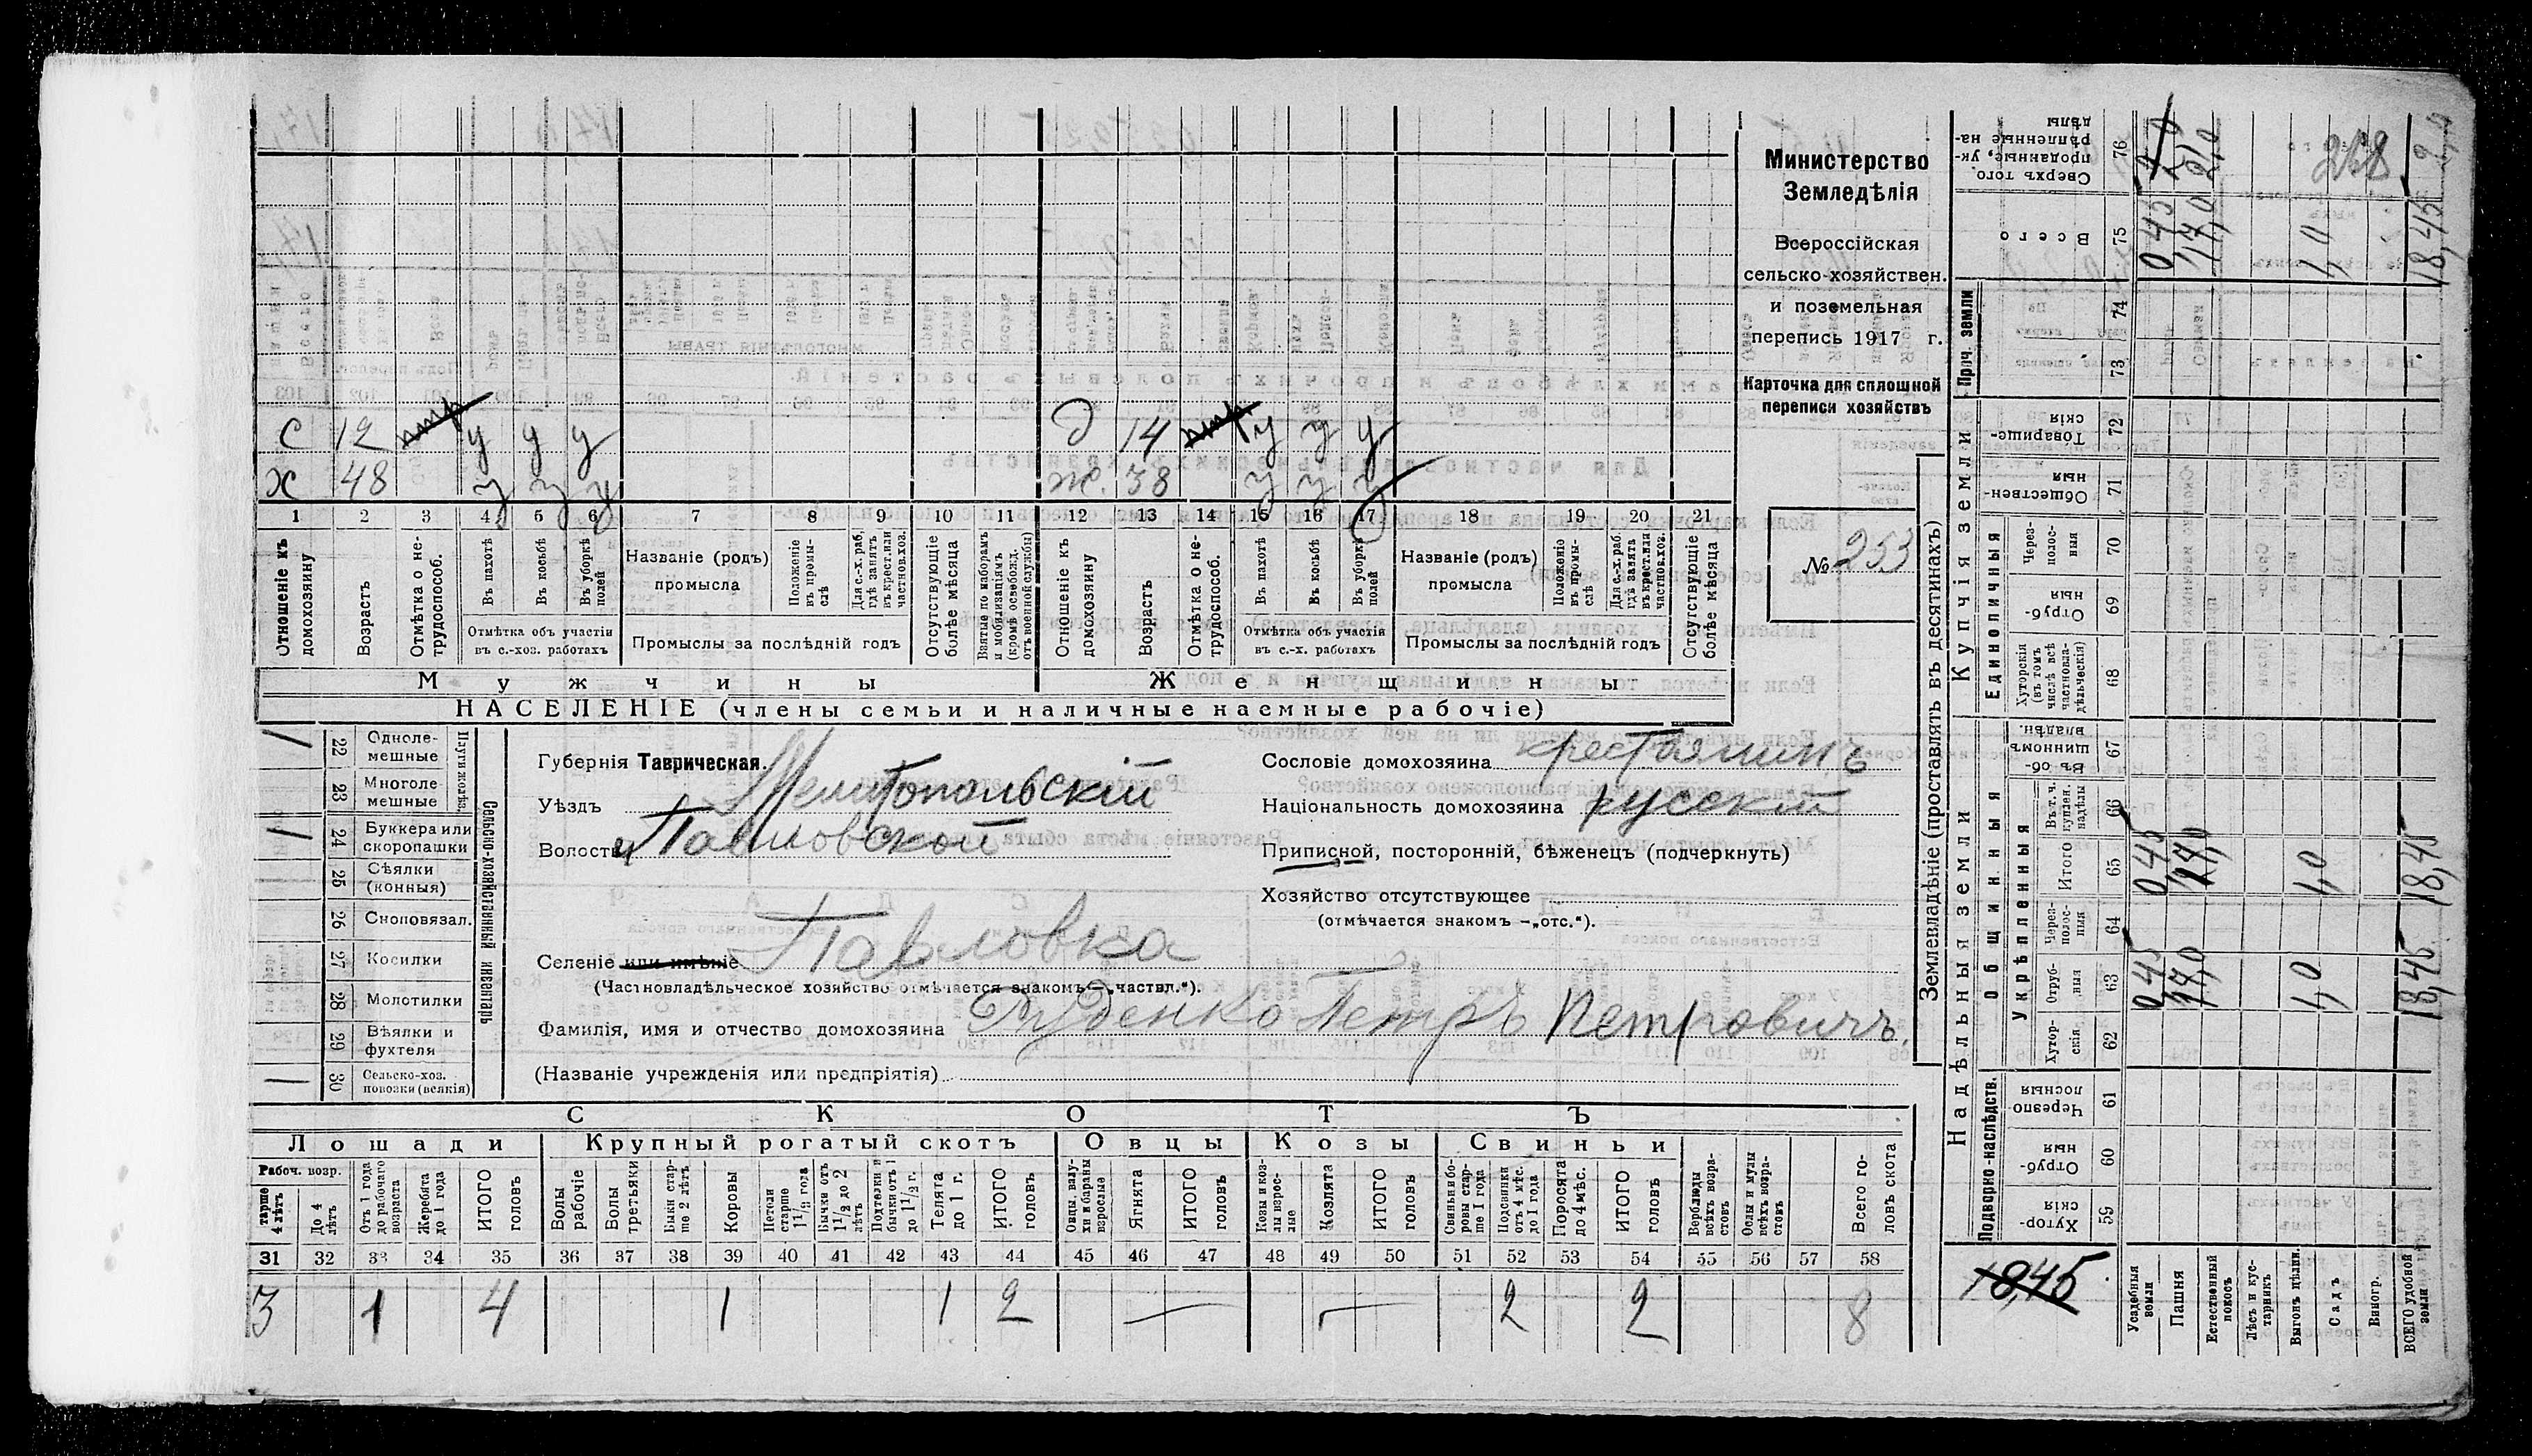 Министерство
Земледѣлія
Всероссійская
сельско-хозяйствен.
и поземельная
перепись 1917 г.
Карточка для сплошной
переписи хозяйствъ
№ 253
с 12 у у у
х 48 у у у
д 14 у у у
ж. 38 у у у
1 2 3 4 5 6 7 8 9 10 11 12 13 14 15 16 17 18 19 20 21
Отношеніе къ домохозяину
Возрастъ
Отмѣтка о не-трудоспособ.
Въ пахотѣ
Въ косьбѣ
Въ уборкѣ полей
Отмѣтка объ участіи
въ с.-хоз. работахъ
Названіе (родъ)
промысла
Положеніе въ промы-слѣ
Для с.-х. раб. гдѣ занятъ въ крест. или частнов. хоз.
Промыслы за послѣдній годъ
Отсутствующіе болѣе мѣсяца
Взятые по наборамъ и мобилизаціямъ (кромѣ освобожд. отъ военной службы)
Отношеніе къ домохозяину
Возрастъ
Отмѣтка о не-трудоспособ.
Въ пахотѣ
Въ косьбѣ
Въ уборкѣ полей
Отмѣтка объ участіи
въ с.-х. работахъ
Названіе (родъ)
промысла
Положеніе въ промы-слѣ
Для с.-х. раб. гдѣ занята въ крест. или частнов. хоз.
Промыслы за послѣдній годъ
Отсутствующіе болѣе мѣсяца
Мужчины
Женщины
НАСЕЛЕНІЕ (члены семьи и наличные наемные рабочіе)
Сельско-хозяйственный инвентарь
22 Однолемешные 1
23 Многолемешные
24 Буккера или скоропашки 1
25 Сѣялки (конныя)
26 Сноповязал.
27 Косилки
28 Молотилки
29 Вѣялки и фухтеля
30 Сельско-хоз. повозки (всякія) 1
Губернія Таврическая.
Уѣздъ Мелитопольскій
Волость Павловской
Селеніе или имѣніе Павловка
(Частновладѣльческое хозяйство отмѣчается знакомъ —„частвл.“).
Фамилія, имя и отчество домохозяина Руденко Петръ Петровичъ.
(Названіе учрежденія или предпріятія)
Сословіе домохозяина крестьянинъ
Національность домохозяина русскій
Приписной, посторонній, бѣженецъ (подчеркнуть)
Хозяйство отсутствующее
(отмѣчается знакомъ —„отс.“).
СКОТЪ
Лошади Крупный рогатый скотъ Овцы Козы Свиньи
Рабоч. возр.
старше 4 лѣтъ
До 4 лѣтъ
Отъ 1 года до рабочаго возраста
Жеребята до 1 года
ИТОГО головъ
Волы рабочіе
Волы третьяки
Быки старше 2 лѣтъ
Коровы
Нетели старше 1 1/2 года
Бычки отъ 1 1/2 до 2 лѣтъ
Подтелки и бычки отъ 1 до 1 1/2 г.
Телята до 1 г.
ИТОГО головъ
Овцы, валухи и бараны взрослые
Ягнята
ИТОГО головъ
Козы и козлы взрослые
Козлята
ИТОГО головъ
Свиньи и боровы старше 1 года
Подсвинки отъ 4 мѣс. до 1 года
Поросята до 4 мѣс.
ИТОГО головъ
Верблюды всѣхъ возрастовъ
Ослы и мулы всѣхъ возрастовъ
Всего головъ скота
31 32 33 34 35 36 37 38 39 40 41 42 43 44 45 46 47 48 49 50 51 52 53 54 55 56 57 58
3 1 4 1 1 2 — — 2 2 8
Землевладѣніе (проставлять въ десятинахъ)
Надѣльныя земли
Купчія земли
Проч. земли
Подворно-наслѣдств.
Общинныя
Укрѣпленныя
Единоличныя
59 Хуторскія
60 Отрубныя
61 Черезполосныя
62 Хуторскія
63 Отрубныя 0,45 17,0 1,0 18,45
64 Черезполосныя
65 Итого 0,45 17,0 1,0 18,45
66 Въ т. ч. куплен. надѣлы
67 Въ общинномъ владѣн.
68 Хуторскія (въ томъ числѣ всѣ частновладѣльческія)
69 Отрубныя
70 Черезполосныя
71 Общественныя
72 Товарищескія
73
74
75 Всего 0,45 17,0 1,0 18,45
76 Сверхъ того, проданные, укрѣпленные надѣлы
268
18,45
Усадебныя земли
Пашня
Естественный покосъ
Лѣсъ и кустарникъ
Выгонъ цѣлин.
Садъ
Виногр.
ВСЕГО удобной земли